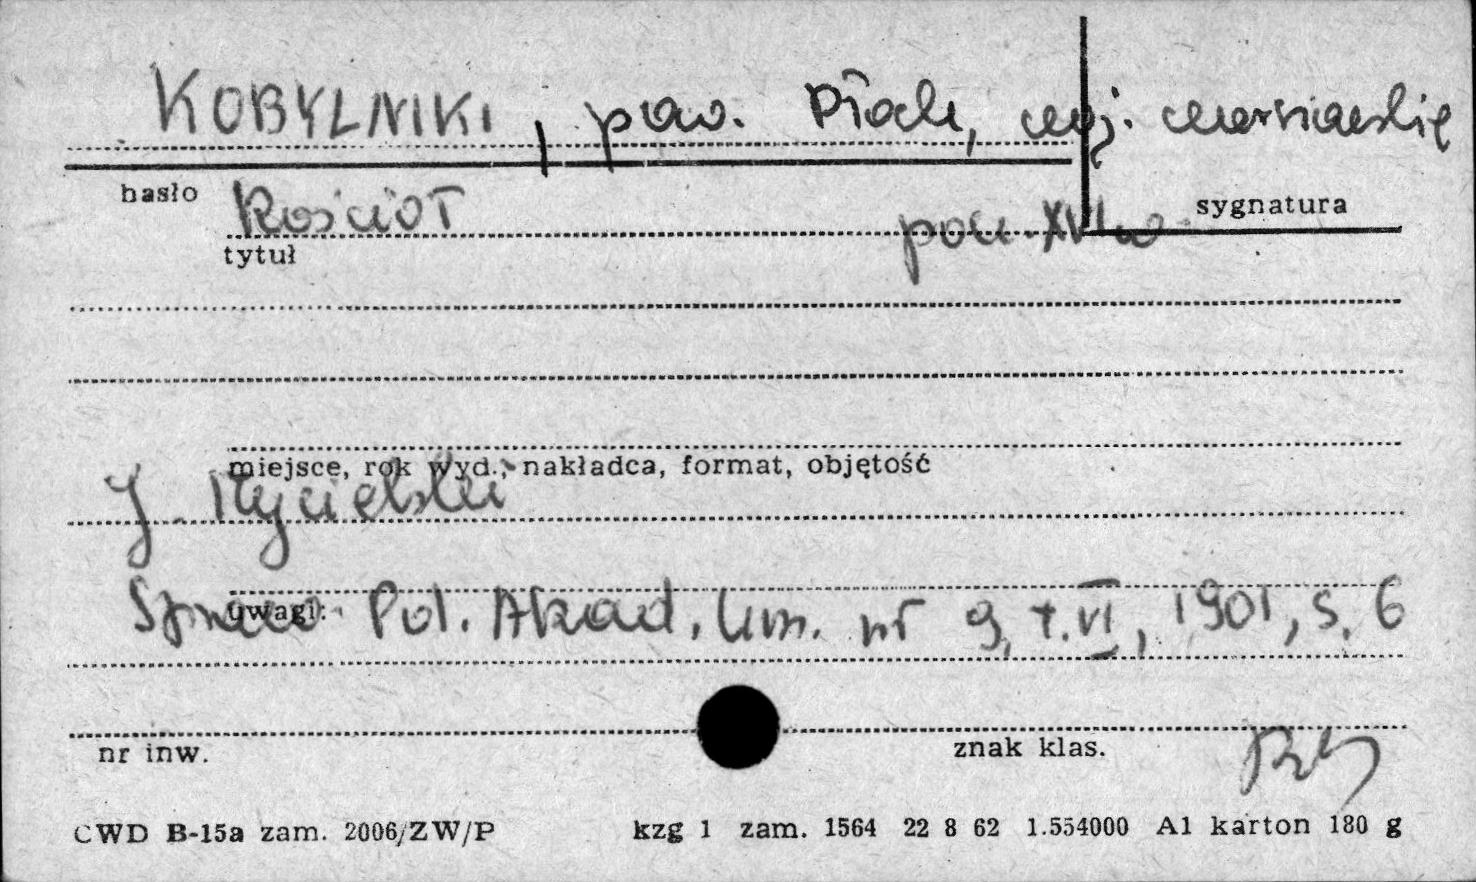 KOBYLNIKI, pow. Płock, woj. warszawskie
hasło
sygnatura
Kościół pocz. XVI w.
tytuł
miejsce, rok wyd., nakładca, format, objętość
J. Mycielski
uwagi:
Spraw. Pol. Akad. Um. nr 9, t. VI, 1901, s. 6
nr inw.
znak klas.
CWD B-15a zam. 2006/ZW/P kzg 1 zam. 1564 22 8 62 1.554000 A1 karton 180 g